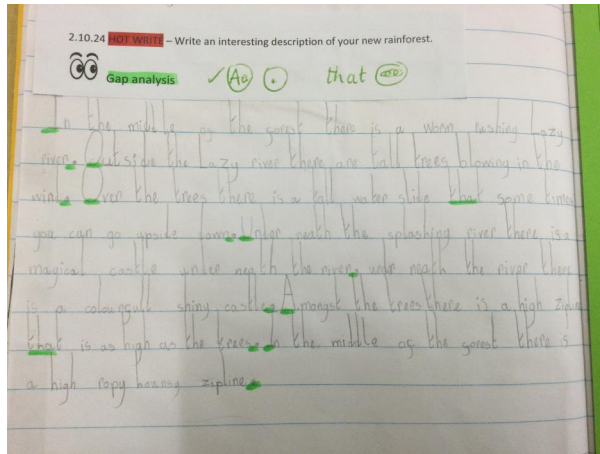 2.10.24 HOT WRITE – Write an interesting description of your new rainforest.
Gap analysis ✓ Aa . that are
In the middle of the forest there is a worm rushing lazy
river. Outside the Lazy river there are tall trees blowing in the
wind. Over the trees there is a tall water slide that some times
you can go upside down. Under neath the splashing river there is a
magical castle under neath the river, under neath the river there
is a colourfull shing castle. Amongst the trees there is a high zipline
that is as high as the trees. In the middle of the forest there is
a high ropy bounsy zipline.